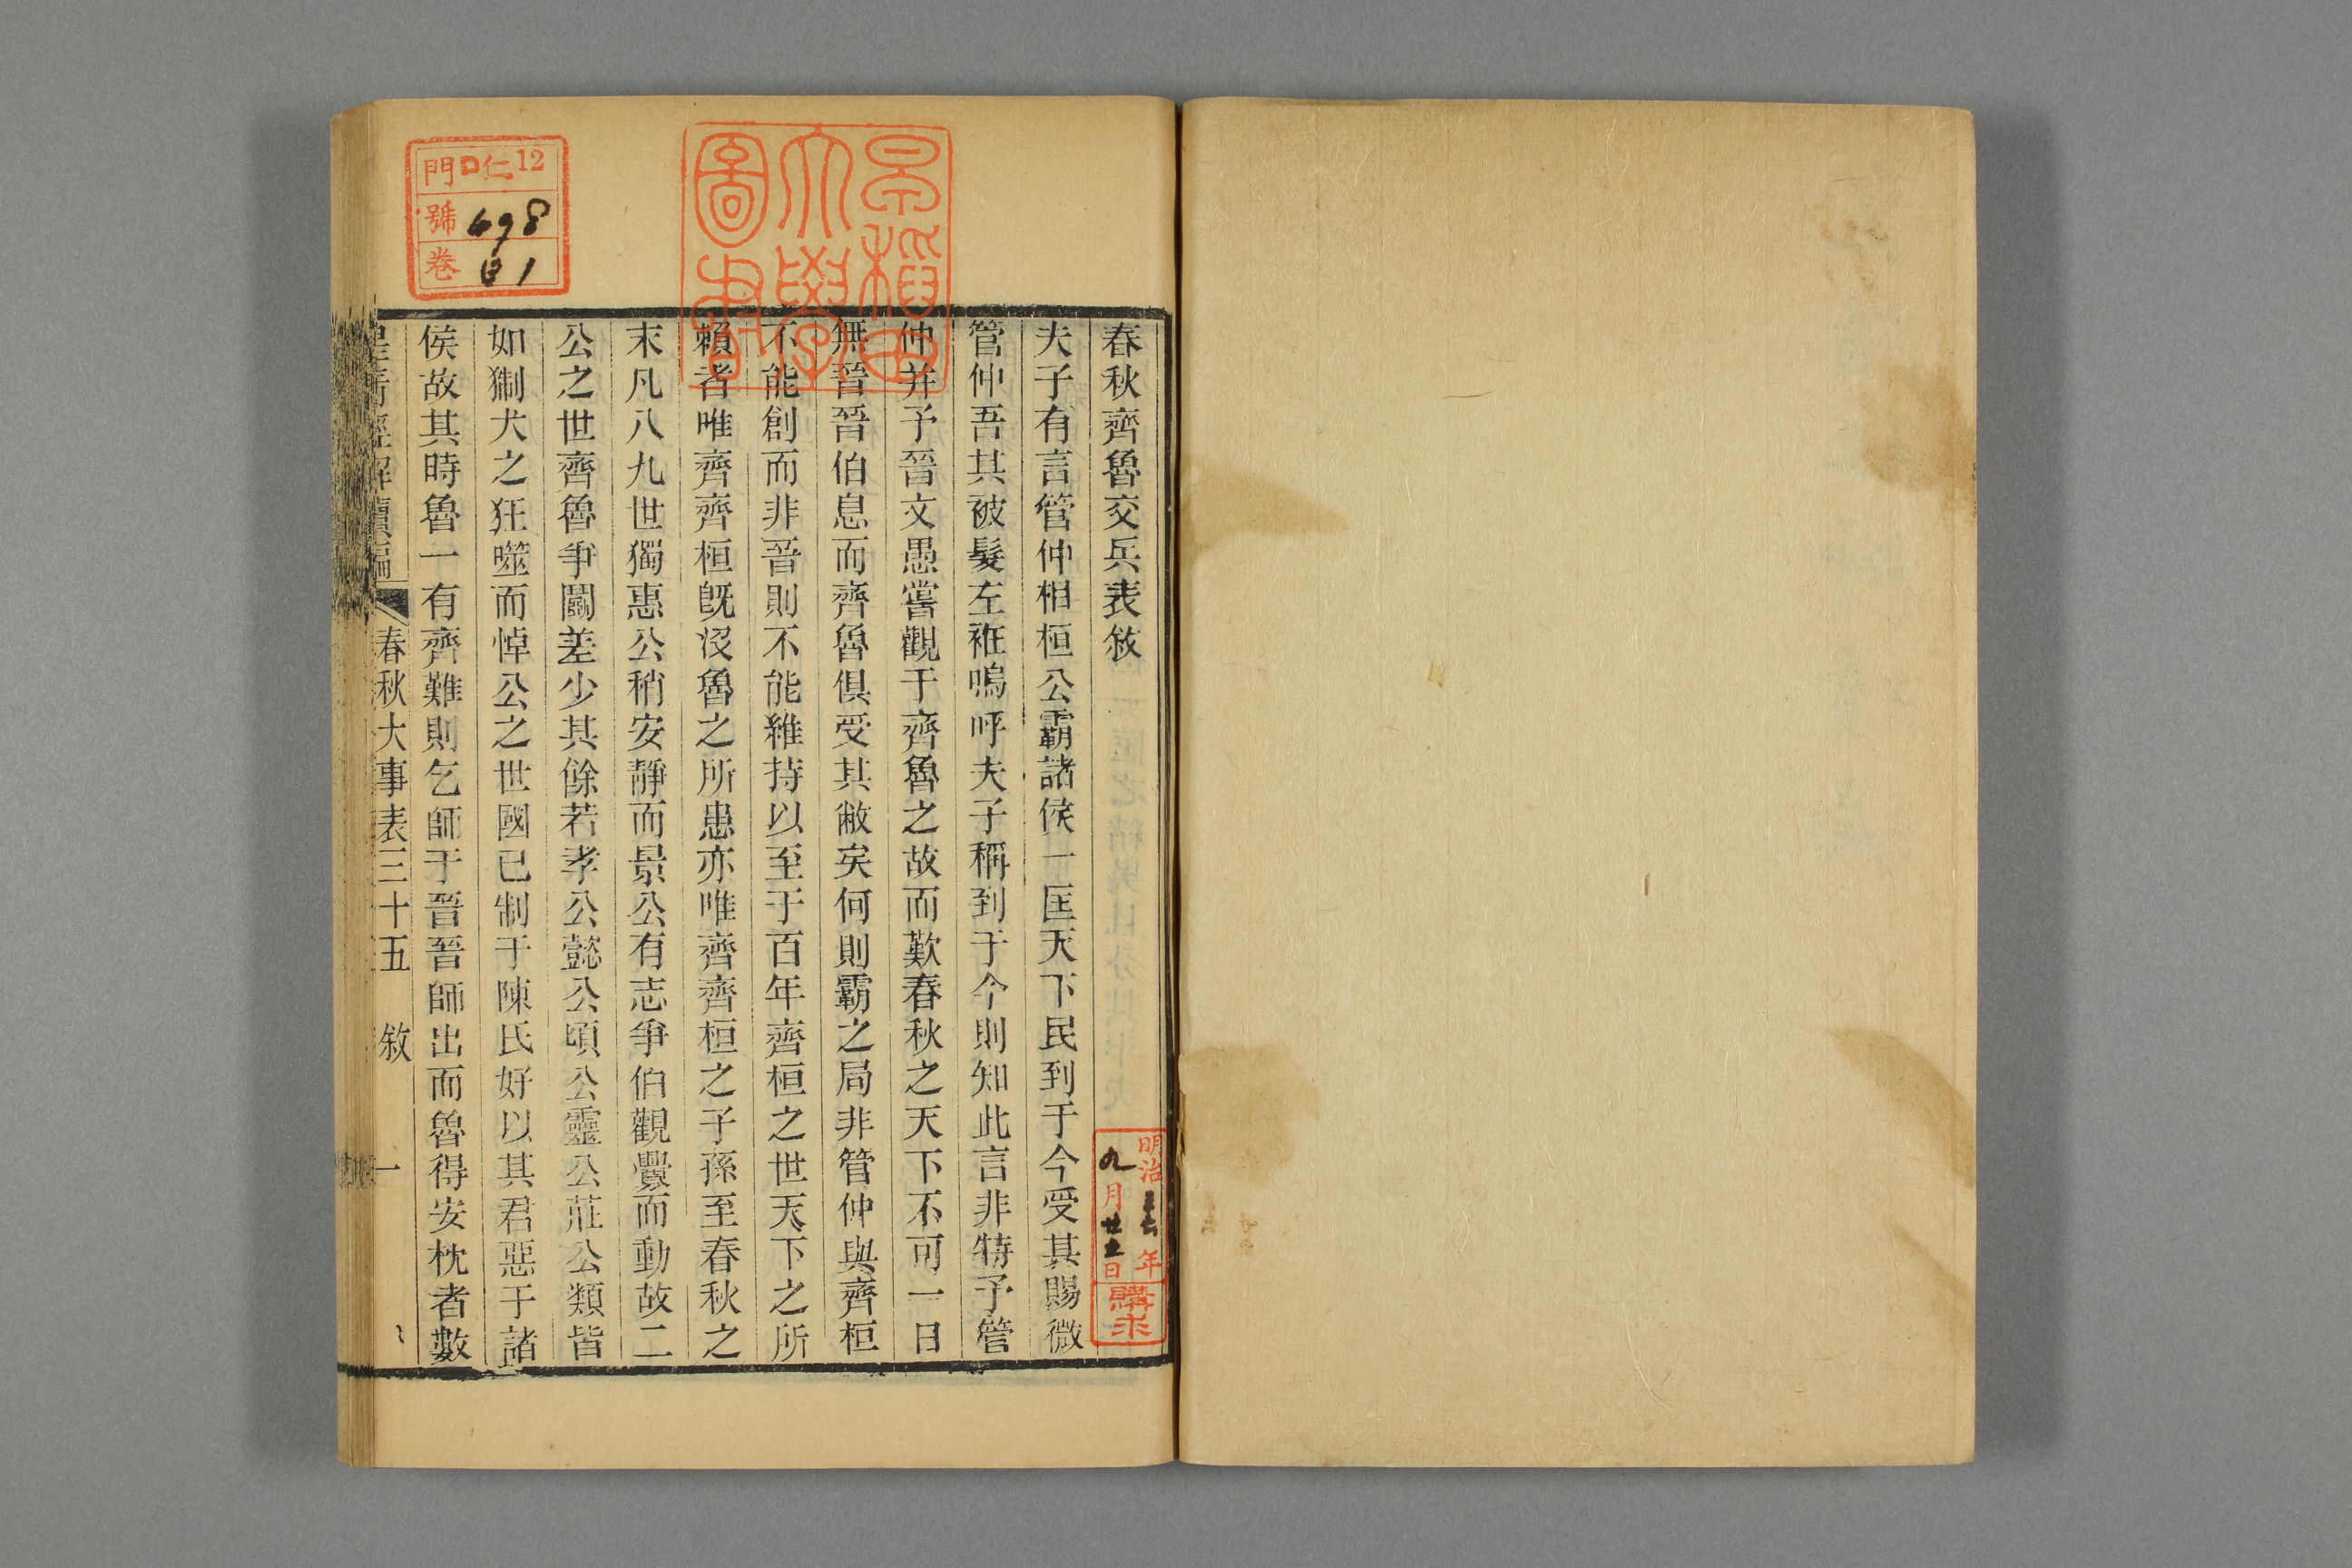 春秋齊魯交兵表敘
夫子有言管仲相桓公霸諸侯一匡天下民到于今受其賜微
管仲吾其被髮左袵嗚呼夫子稱到于今則知此言非特予管
仲并予晉文愚嘗觀于齊魯之故而歎春秋之天下不可一日
無晉晉伯息而齊魯俱受其敝矣何則霸之局非管仲與齊桓
不能創而非晉則不能維持以至于百年齊桓之世天下之所
賴者唯齊齊桓旣沒魯之所患亦唯齊齊桓之子孫至春秋之
末凡八九世獨惠公稍安靜而景公有志爭伯觀釁而動故二
公之世齊魯爭鬭差少其餘若孝公懿公頃公靈公莊公類皆
如猘犬之狂噬而悼公之世國已制于陳氏好以其君惡于諸
侯故其時魯一有齊難則乞師于晉晉師出而魯得安枕者數
皇清經解續編 春秋大事表三十五 敘 一
早稻田
大學
圖書
門 口仁12
號 498
卷 31
明治 年
九月廿 日
購求